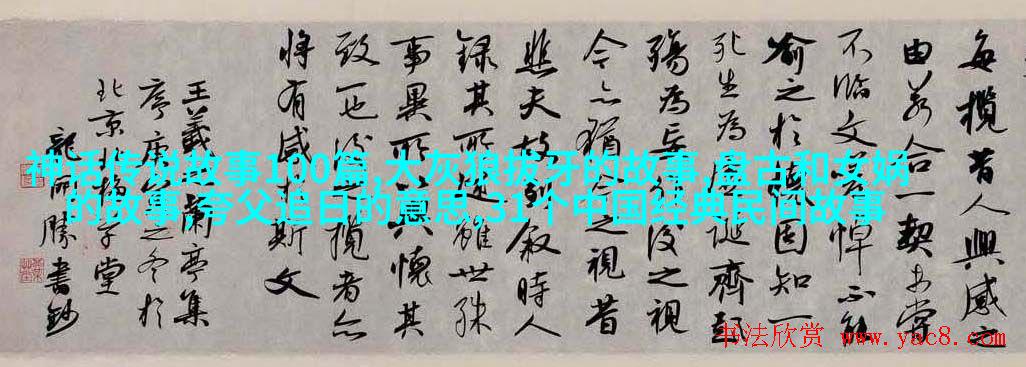 每攬昔人興感之
由若合一契未嘗
不臨文嗟悼不能
喻之於懷固知一
死生為虛誕齊彭
殤為妄作後之視
今亦猶今之視昔
悲夫故列叙時人
錄其所述雖世殊
事異所以興懷其
致一也後之攬者亦
將有感於斯文
王羲之蘭亭集
序庚之冬於
北京子堂
龍開勝書鈔
神话传说故事100篇,大灰狼拔牙的故事,盘古和女娲
的故事,夸父追日的意思,,31个中国经典民间故事
书法欣赏 www.yac8.com